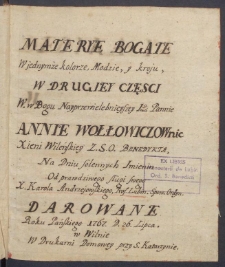 MATERIE BOGATE
W jednymże kolorze, Modzie, y kroju,
W DRUGIEY CZĘSCI
W. w Bogu Nayprzewielebnieyszey Jey Pannie
ANNIE WOŁŁOWICZOWnie
Xieni Wileńskiey Z. S. O. BENEDYKTA,
Na Dniu solennych Imienin
Od prawdziwego sługi swego
X. Karola Andrzejowskiego,
DAROWANE
Roku Pańskiego 1767. D. 26. Lipca,
w Wilnie
W Drukarni Domowey przy S. Katarzynie.
EX LIBRIS